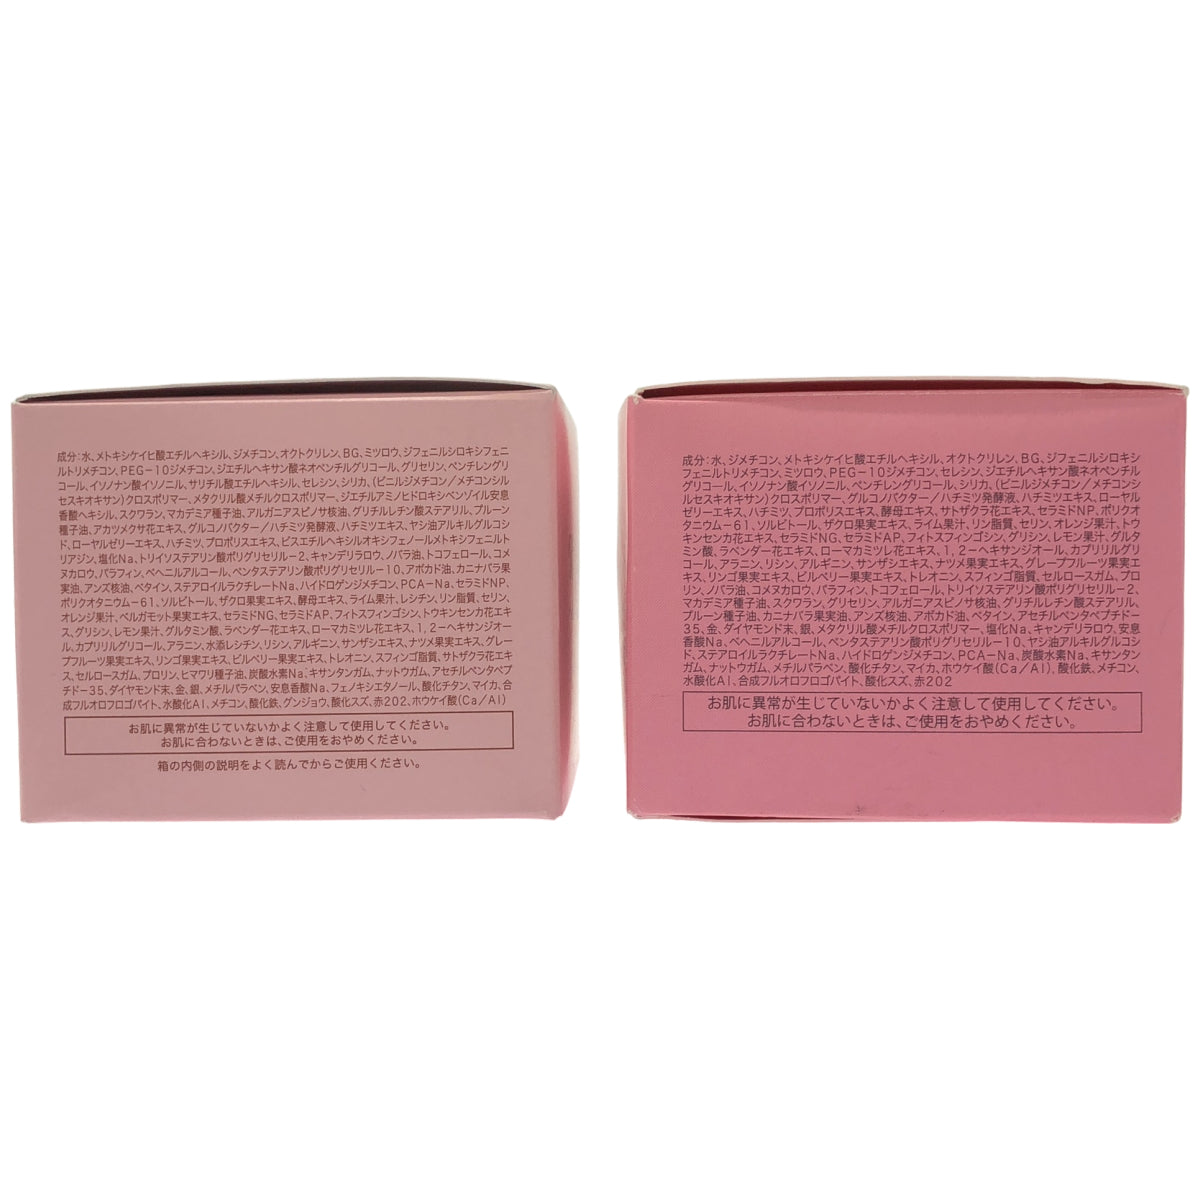 成分:水、メトキシケイヒ酸エチルヘキシル、ジメチコン、オクトクリレン、BG、ミツロウ、ジフェニルシロキシフェニ
ルトリメチコン、PEG-10ジメチコン、ジエチルヘキサン酸ネオペンチルグリコール、グリセリン、ペンチレングリ
コール、イソノナン酸イソノニル、サリチル酸エチルヘキシル、セレシン、シリカ、(ビニルジメチコン/メチコンシル
セスキオキサン)クロスポリマー、メタクリル酸メチルクロスポリマー、ジエチルアミノヒドロキシベンゾイル安息
香酸ヘキシル、スクワラン、マカデミア種子油、アルガニアスピノサ核油、グリチルレチン酸ステアリル、プルーン
種子油、アカツメクサ花エキス、グルコノバクター/ハチミツ発酵液、ハチミツエキス、ヤシ油アルキルグルコシ
ド、ローヤルゼリーエキス、ハチミツ、プロポリスエキス、ビスエチルヘキシルオキシフェノールメトキシフェニルト
リアジン、塩化Na、トリイソステアリン酸ポリグリセリル-2、キャンデリラロウ、ノバラ油、トコフェロール、コメ
ヌカロウ、パラフィン、ベヘニルアルコール、ペンタステアリン酸ポリグリセリル-10、アボカド油、カニナバラ果
実油、アンズ核油、ベタイン、ステアロイルラクチレートNa、ハイドロゲンジメチコン、PCA-Na、セラミドNP、
ポリクオタニウム-61、ソルビトール、ザクロ果実エキス、酵母エキス、ライム果汁、レシチン、リン脂質、セリン、
オレンジ果汁、ベルガモット果実エキス、セラミドNG、セラミドAP、フィトスフィンゴシン、トウキンセンカ花エキ
ス、グリシン、レモン果汁、グルタミン酸、ラベンダー花エキス、ローマカミツレ花エキス、1,2-ヘキサンジオー
ル、カプリリルグリコール、アラニン、水添レシチン、リシン、アルギニン、サンザシエキス、ナツメ果実エキス、グレー
プフルーツ果実エキス、リンゴ果実エキス、ビルベリー果実エキス、トレオニン、スフィンゴ脂質、サトザクラ花エキ
ス、セルロースガム、プロリン、ヒマワリ種子油、炭酸水素Na、キサンタンガム、ナットウガム、アセチルペンタペプ
チド-35、ダイヤモンド末、金、銀、メチルパラベン、安息香酸Na、フェノキシエタノール、酸化チタン、マイカ、合
成フルオロフロゴパイト、水酸化Al、メチコン、酸化鉄、グンジョウ、酸化スズ、赤202、ホウケイ酸(Ca/Al)
お肌に異常が生じていないかよく注意して使用してください。
お肌に合わないときは、ご使用をおやめください。
箱の内側の説明をよく読んでからご使用ください。
成分:水、ジメチコン、メトキシケイヒ酸エチルヘキシル、オクトクリレン、BG、ジフェニルシロキシ
フェニルトリメチコン、ミツロウ、PEG-10ジメチコン、セレシン、ジエチルヘキサン酸ネオペンチル
グリコール、イソノナン酸イソノニル、ペンチレングリコール、シリカ、(ビニルジメチコン/メチコンシ
ルセスキオキサン)クロスポリマー、グルコノバクター/ハチミツ発酵液、ハチミツエキス、ローヤル
ゼリーエキス、ハチミツ、プロポリスエキス、酵母エキス、サトザクラ花エキス、セラミドNP、ポリクオ
タニウム-61、ソルビトール、ザクロ果実エキス、ライム果汁、リン脂質、セリン、オレンジ果汁、トウ
キンセンカ花エキス、セラミドNG、セラミドAP、フィトスフィンゴシン、グリシン、レモン果汁、グルタ
ミン酸、ラベンダー花エキス、ローマカミツレ花エキス、1,2-ヘキサンジオール、カプリリルグリコ
ール、アラニン、リシン、アルギニン、サンザシエキス、ナツメ果実エキス、グレープフルーツ果実エキ
ス、リンゴ果実エキス、ビルベリー果実エキス、トレオニン、スフィンゴ脂質、セルロースガム、プロ
リン、ノバラ油、コメヌカロウ、パラフィン、トコフェロール、トリイソステアリン酸ポリグリセリル-2、
マカデミア種子油、スクワラン、グリセリン、アルガニアスピノサ核油、グリチルレチン酸ステアリル、
プルーン種子油、カニナバラ果実油、アンズ核油、アボカド油、ベタイン、アセチルペンタペプチド-
35、金、ダイヤモンド末、銀、メタクリル酸メチルクロスポリマー、塩化Na、キャンデリラロウ、安息
香酸Na、ベヘニルアルコール、ペンタステアリン酸ポリグリセリル-10、ヤシ油アルキルグルコシ
ド、ステアロイルラクチレートNa、ハイドロゲンジメチコン、PCA-Na、炭酸水素Na、キサンタン
ガム、ナットウガム、メチルパラベン、酸化チタン、マイカ、ホウケイ酸(Ca/Al)、酸化鉄、メチコン、
水酸化Al、合成フルオロフロゴパイト、酸化スズ、赤202
お肌に異常が生じていないかよく注意して使用してください。
お肌に合わないときは、ご使用をおやめください。